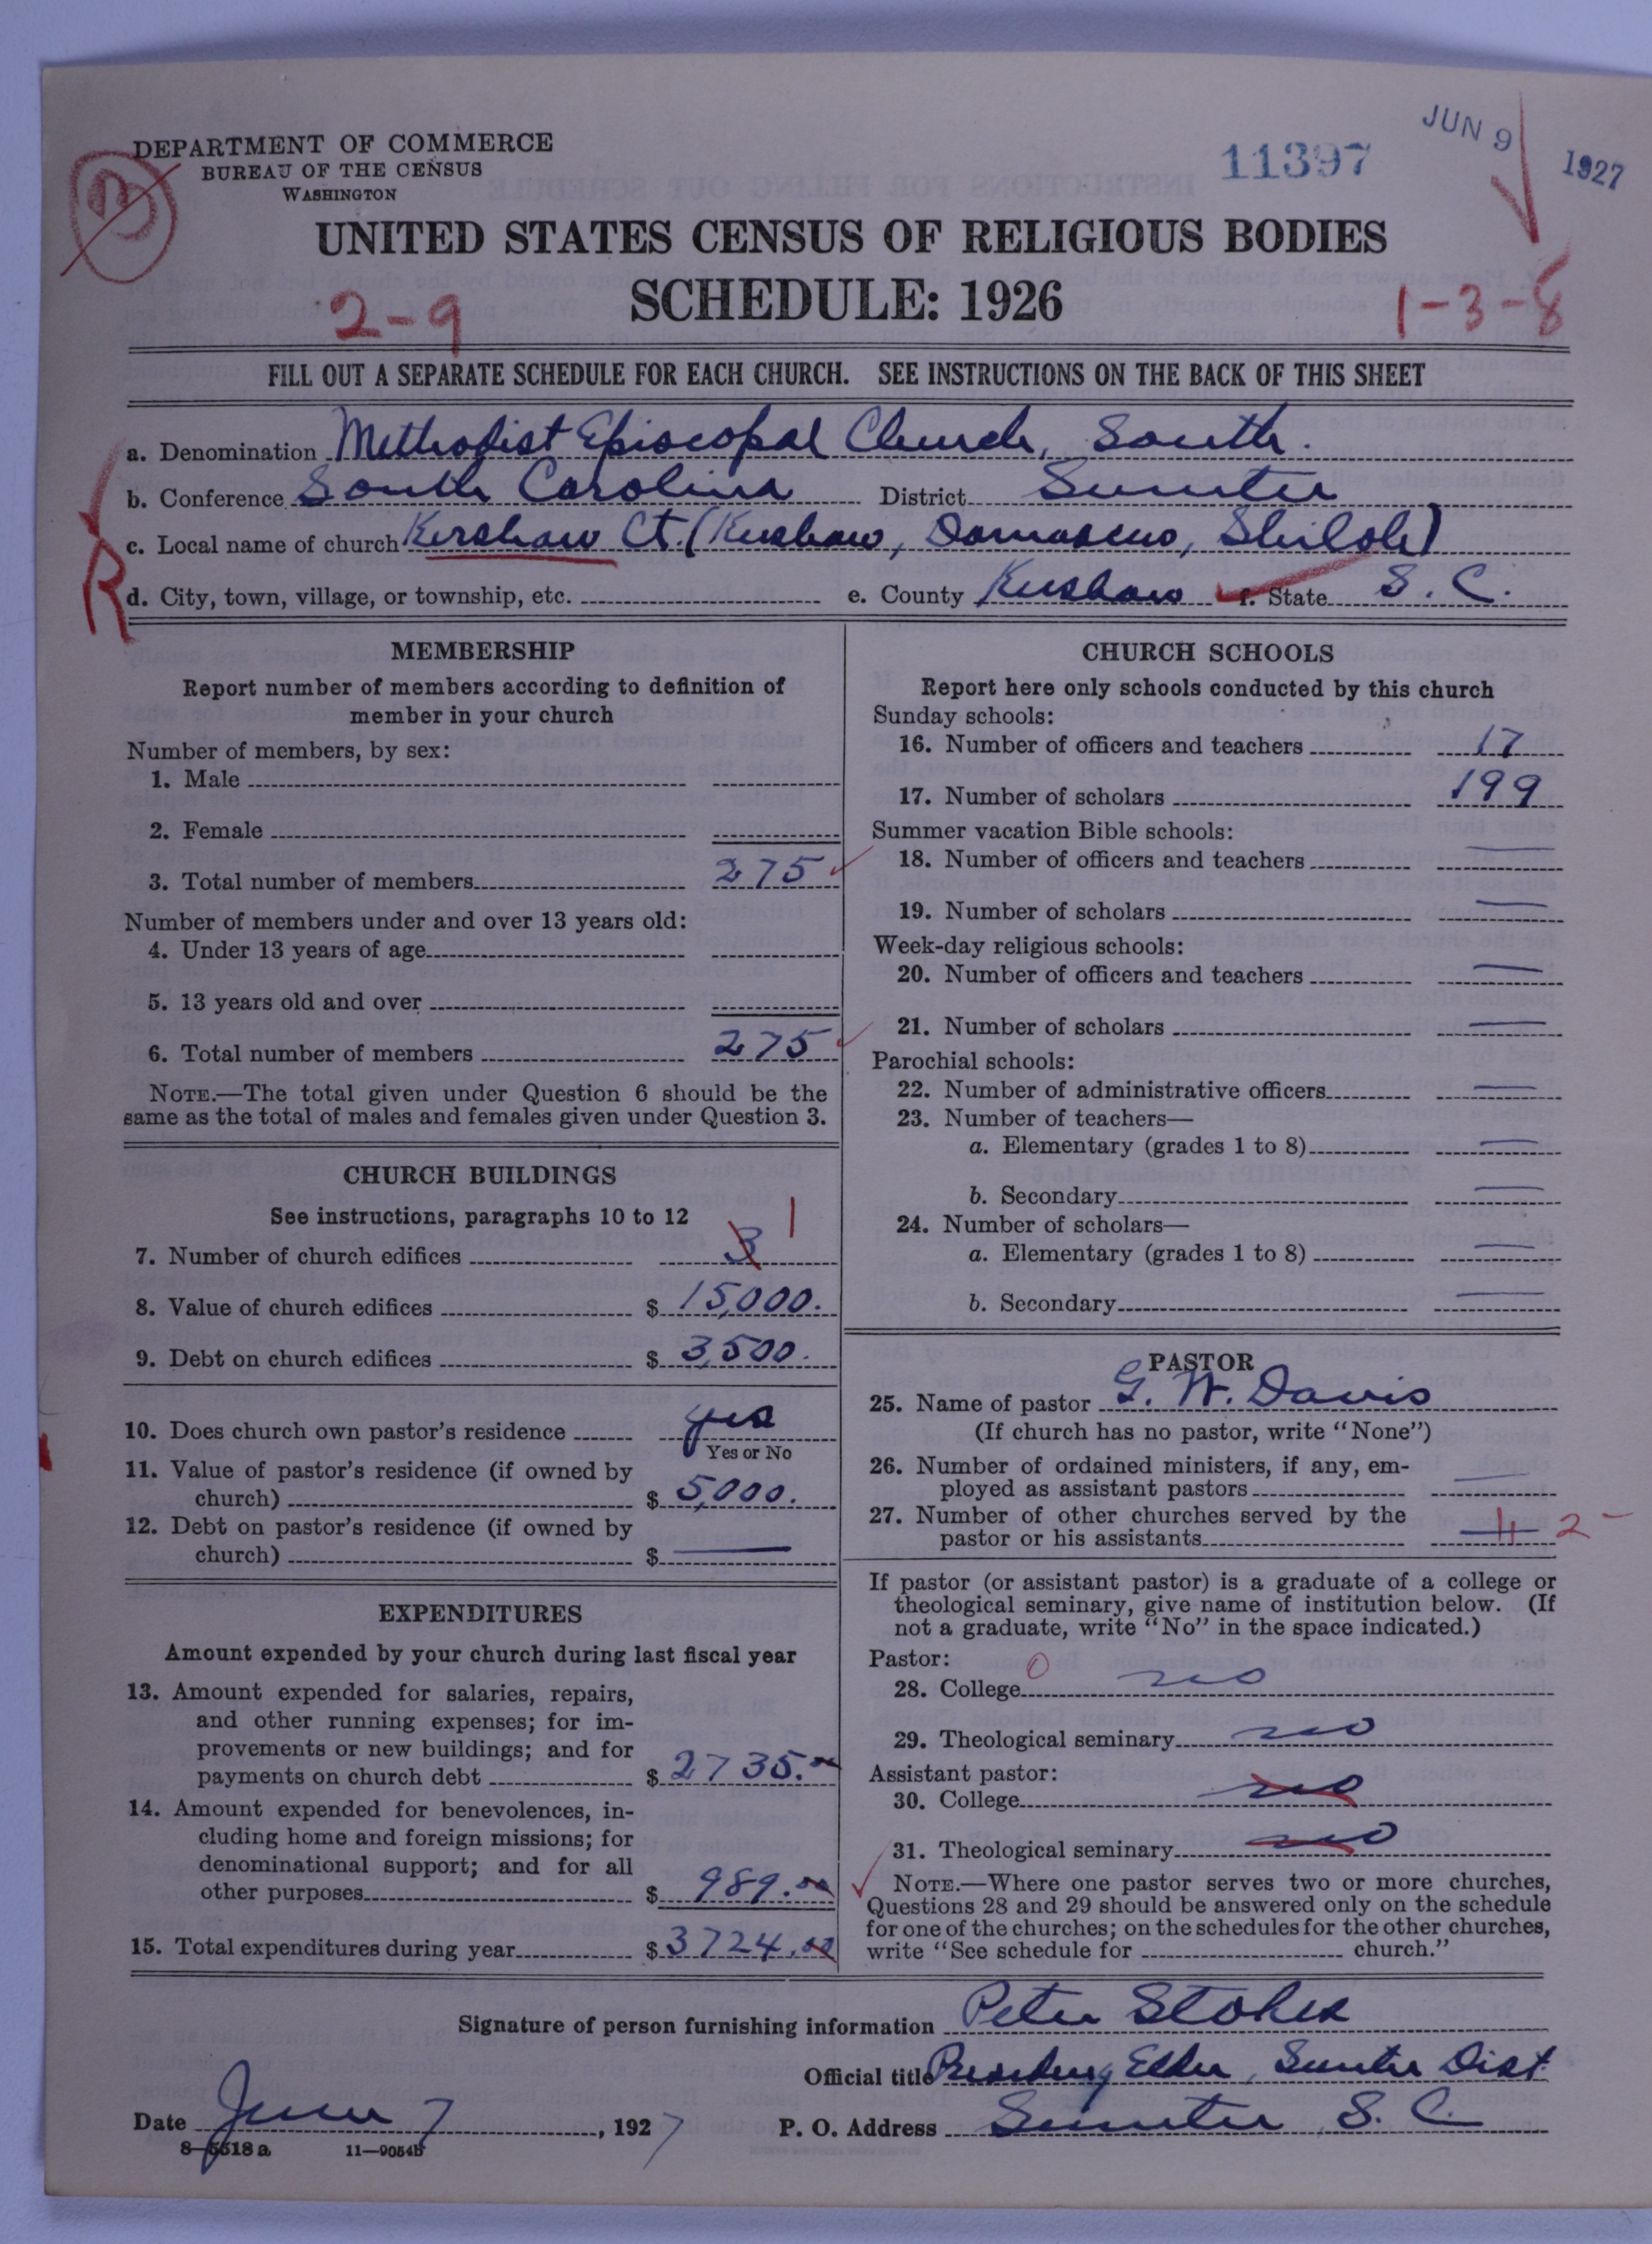 DEPARTMENT OF COMMERCE
BUREAU OF THE CENSUS
WASHINGTON
11397
JUN 9 1927
UNITED STATES CENSUS OF RELIGIOUS BODIES
SCHEDULE: 1926
2-9
1-3-8
FILL OUT A SEPARATE SCHEDULE FOR EACH CHURCH. SEE INSTRUCTIONS ON THE BACK OF THIS SHEET
a. Denomination Methodist Episcopal Church, South.
b. Conference South Carolina District Sumter
c. Local name of church Kershaw Ct. (Kershaw, Damascus, Shiloh)
R
d. City, town, village, or township, etc. e. County Kershaw f. State S. C.
MEMBERSHIP
Report number of members according to definition of
member in your church
Number of members, by sex:
1. Male
2. Female
3. Total number of members 275
Number of members under and over 13 years old:
4. Under 13 years of age
5. 13 years old and over
6. Total number of members 275
NOTE.—The total given under Question 6 should be the
same as the total of males and females given under Question 3.
CHURCH BUILDINGS
See instructions, paragraphs 10 to 12
7. Number of church edifices 3 1
8. Value of church edifices $ 15,000.
9. Debt on church edifices $ 3,500.
10. Does church own pastor's residence yes
Yes or No
11. Value of pastor's residence (if owned by
church) $ 5,000.
12. Debt on pastor's residence (if owned by
church) $ —
EXPENDITURES
Amount expended by your church during last fiscal year
13. Amount expended for salaries, repairs,
and other running expenses; for im-
provements or new buildings; and for
payments on church debt $ 2735.00
14. Amount expended for benevolences, in-
cluding home and foreign missions; for
denominational support; and for all
other purposes $ 989.00
15. Total expenditures during year $ 3724.00
CHURCH SCHOOLS
Report here only schools conducted by this church
Sunday schools:
16. Number of officers and teachers 17
17. Number of scholars 199
Summer vacation Bible schools:
18. Number of officers and teachers —
19. Number of scholars —
Week-day religious schools:
20. Number of officers and teachers —
21. Number of scholars —
Parochial schools:
22. Number of administrative officers —
23. Number of teachers—
a. Elementary (grades 1 to 8) —
b. Secondary —
24. Number of scholars—
a. Elementary (grades 1 to 8) —
b. Secondary —
PASTOR
25. Name of pastor G. W. Davis
(If church has no pastor, write "None")
26. Number of ordained ministers, if any, em-
ployed as assistant pastors —
27. Number of other churches served by the
pastor or his assistants 2
If pastor (or assistant pastor) is a graduate of a college or
theological seminary, give name of institution below. (If
not a graduate, write "No" in the space indicated.)
Pastor: 0
28. College no
29. Theological seminary no
Assistant pastor:
30. College no
31. Theological seminary no
NOTE.—Where one pastor serves two or more churches,
Questions 28 and 29 should be answered only on the schedule
for one of the churches; on the schedules for the other churches,
write "See schedule for church."
Signature of person furnishing information Peter Stokes
Official title Presiding Elder, Sumter Dist.
Date June 7, 1927 P. O. Address Sumter S. C.
8-5518 a 11-9054b